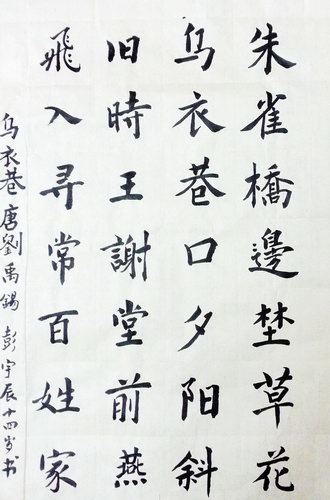 朱雀橋邊埜草花
乌衣巷口夕阳斜
旧時王謝堂前燕
飛入寻常百姓家
乌衣巷唐劉禹錫 彭宇辰十四岁书